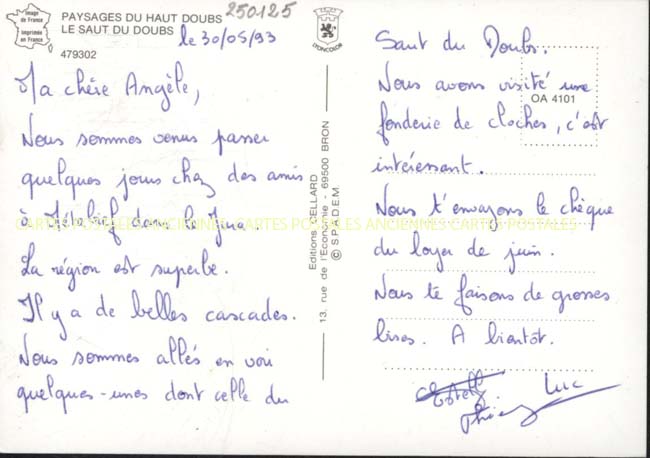 Image
de France
Imprimée
en France
PAYSAGES DU HAUT DOUBS
LE SAUT DU DOUBS
479302
250125
le 30/05/93
LYONCOLOR
Ma chère Angèle,
Nous sommes venus passer
quelques jours chez des amis
à Métabief dans le Jura.
La région est superbe.
Il y a de belles cascades.
Nous sommes allés en voir
quelques-unes dont celle du
Editions CELLARD
13, rue de l'Economie - 69500 BRON
© S.P.A.D.E.M.
OA 4101
Saut du Doubs.
Nous avons visité une
fonderie de cloches, c'est
intéressant.
Nous t'envoyons le chèque
du loyer de juin.
Nous te faisons de grosses
bises. A bientôt.
Luc
CARTES POSTALES ANCIENNES CARTES POSTALES ANCIENNES CARTES POSTALES